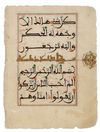 وجهه له الحكم
واليه ترجعون
بسم الله الرحمن الرحيم
الم احسب الناس ان يتركوا
ان يقولوا امنا وهم